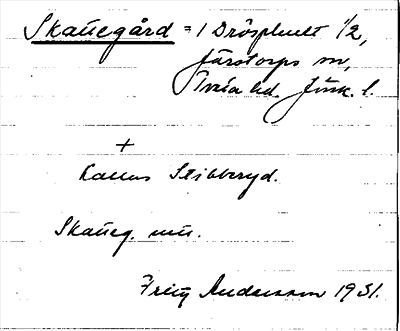 Skånegård = 1 Drösphult 1/2,
Järstorps sn,
Tveta hd. Jönk. l.
+
Kallas Stibberyd.
Skåneg. nu.
Fritz Andersson 1931.